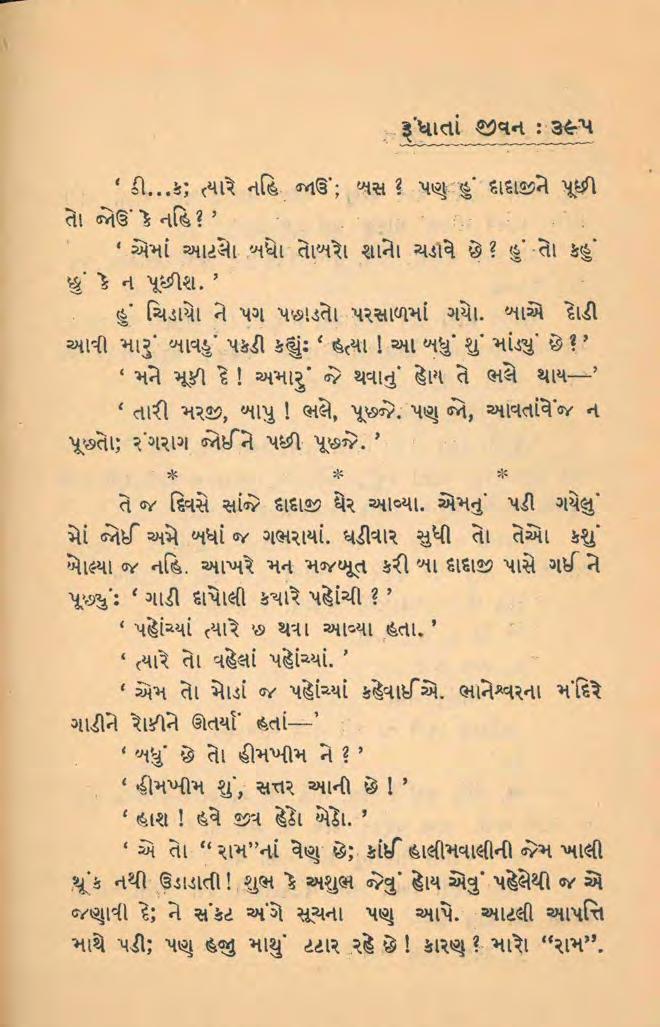 રૂંધાતાં જીવન : ૩૯૫
‘ ડી...ક; ત્યારે નહિ જાઉં; બસ ? પણ હું દાદાજીને પૂછી
તો જોઉં કે નહિ ? ’
‘ એમાં આટલો બધો તોબરો શાનો ચડાવે છે ? હું તો કહું
છું કે ન પૂછીશ. ’
હું ચિડાયો ને પગ પછાડતો પરસાળમાં ગયો. બાએ દોડી
આવી મારું બાવડું પકડી કહ્યું: ‘ હત્યા ! આ બધું શું માંડ્યું છે ? ’
‘ મને મૂકી દે ! અમારું જે થવાનું હોય તે ભલે થાય—’
‘ તારી મરજી, બાપુ ! ભલે, પૂછજે. પણ જો, આવતાંવેંજ ન
પૂછતો; રંગરાગ જોઈને પછી પૂછજે. ’
* * *
તે જ દિવસે સાંજે દાદાજી ઘેર આવ્યા. એમનું પડી ગયેલું
મોં જોઈ અમે બધાં જ ગભરાયાં. ઘડીવાર સુધી તો તેઓ કશું
બોલ્યા જ નહિ. આખરે મન મજબૂત કરી બા દાદાજી પાસે ગઈ ને
પૂછ્યું: ‘ ગાડી દાપોલી કયારે પહોંચી ? ’
‘ પહોંચ્યાં ત્યારે છ થવા આવ્યા હતા. ’
‘ ત્યારે તો વહેલાં પહોંચ્યાં. ’
‘ એમ તો મોડાં જ પહોંચ્યાં કહેવાઈએ. ભાનેશ્વરના મંદિરે
ગાડીને રોકીને ઊતર્યાં હતાં—’
‘ બધું છે તો હીમખીમ ને ? ’
‘ હીમખીમ શું, સત્તર આની છે ! ’
‘ હાશ ! હવે જીવ હેઠો બેઠો. ’
‘ એ તો “ રામ”નાં વેણ છે; કાંઈ હાલીમવાલીની જેમ ખાલી
થૂંક નથી ઉડાડાતી ! શુભ કે અશુભ જેવું હોય એવું પહેલેથી જ એ
જણાવી દે; ને સંકટ અંગે સૂચના પણ આપે. આટલી આપત્તિ
માથે પડી; પણ હજુ માથું ટટાર રહે છે ! કારણ ? મારો “રામ”.